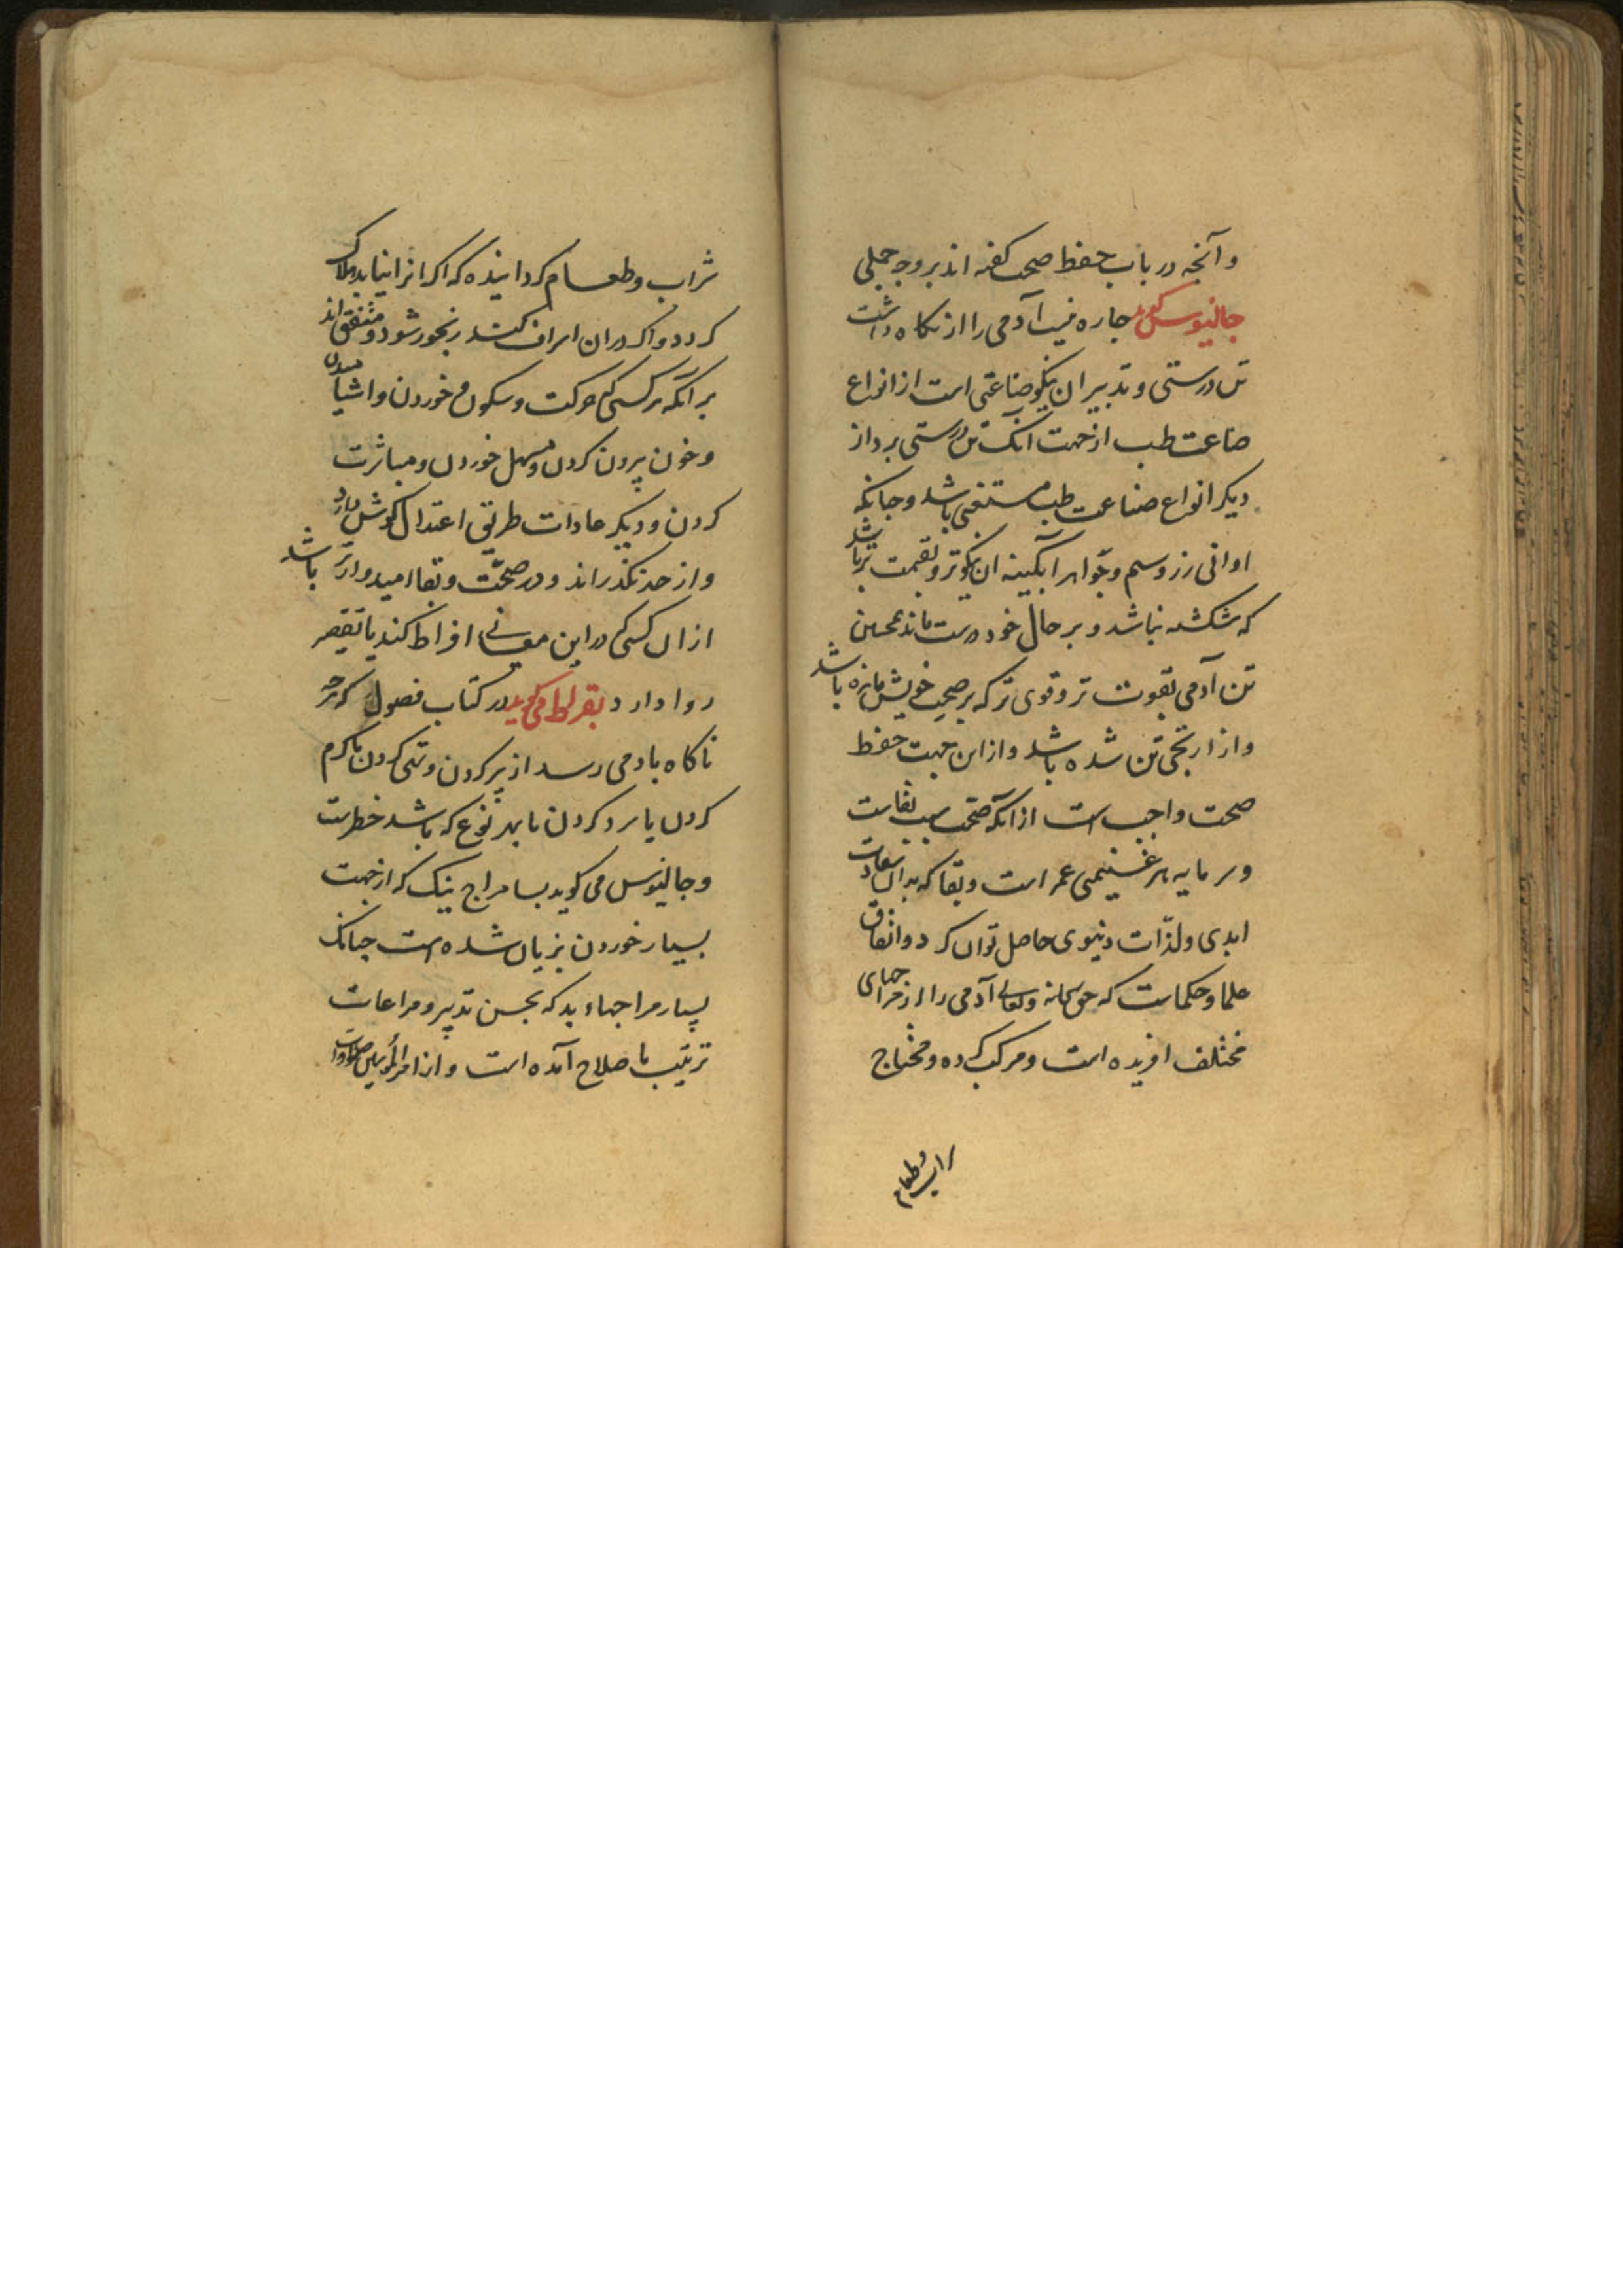 و آنچه در باب حفظ صحت کفته اند بر وجه جملی
جالینوس کوید جاره نیست آدمی را از نکاه داشت
تن درستی و تدبیر ان نیکو صناعتی است از انواع
صناعت طب از جهت آنک تن درستی بر داز
دیکر انواع صناعت طب مستغنی باشد و جانکه
اوانی زر و سیم و جواهر آبکینه ان نیکوتر و بقیمت تر باشد
که شکسته نباشد و بر حال خود درست ماند همچنین
تن آدمی بقوت تر و قوی تر که بر صحت خویش مانده باشد
و از ار تجی تن شده باشد و از این جهت حفظ
صحت واجب است از آنکه صحت سبب بقاست
و سرمایه هر غنیمتی عمر است و بقا که بدان سعادت
ابدی و لذات دنیوی حاصل توان کرد و اتفاق
علما و حکماست که حق سبحانه و تعالی آدمی را از مزاجهای
مختلف افریده است و مرکب کرده و محتاج
شراب و طعام
شراب و طعام کردانیده که اکر انرا نیابد هلاک
کردد و اکر در ان اسراف کند رنجور شود و متفق اند
بر آنکه هر کسی که حرکت و سکون و خوردن و اشامیدن
و خون بیرون کردن و مسهل خوردن و مباشرت
کردن و دیکر عادات طریق اعتدال کوش دارد
و از حد نکذراند و در صحت و بقا امیدوارتر باشد
از ان کسی که در این معانی افراط کند یا تقصیر
روا دارد بقراط می کوید در کتاب فصول که هرچه
ناکاه بادمی رسد از پر کردن و تهی کردن یا کرم
کردن یا سرد کردن یا بهر نوع که باشد خطرست
و جالینوس می کوید بسا مزاج نیک که از جهت
بسیار خوردن بزیان شده است جنانک
بسیار مزاجهاء بد که بحسن تدبیر و مراعات
ترتیب باصلاح آمده است و از امیرالمؤمنین صلوات